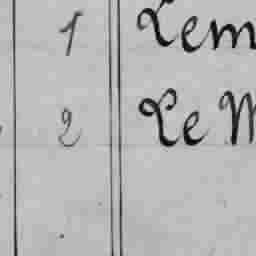 1 Lem
2 Le M